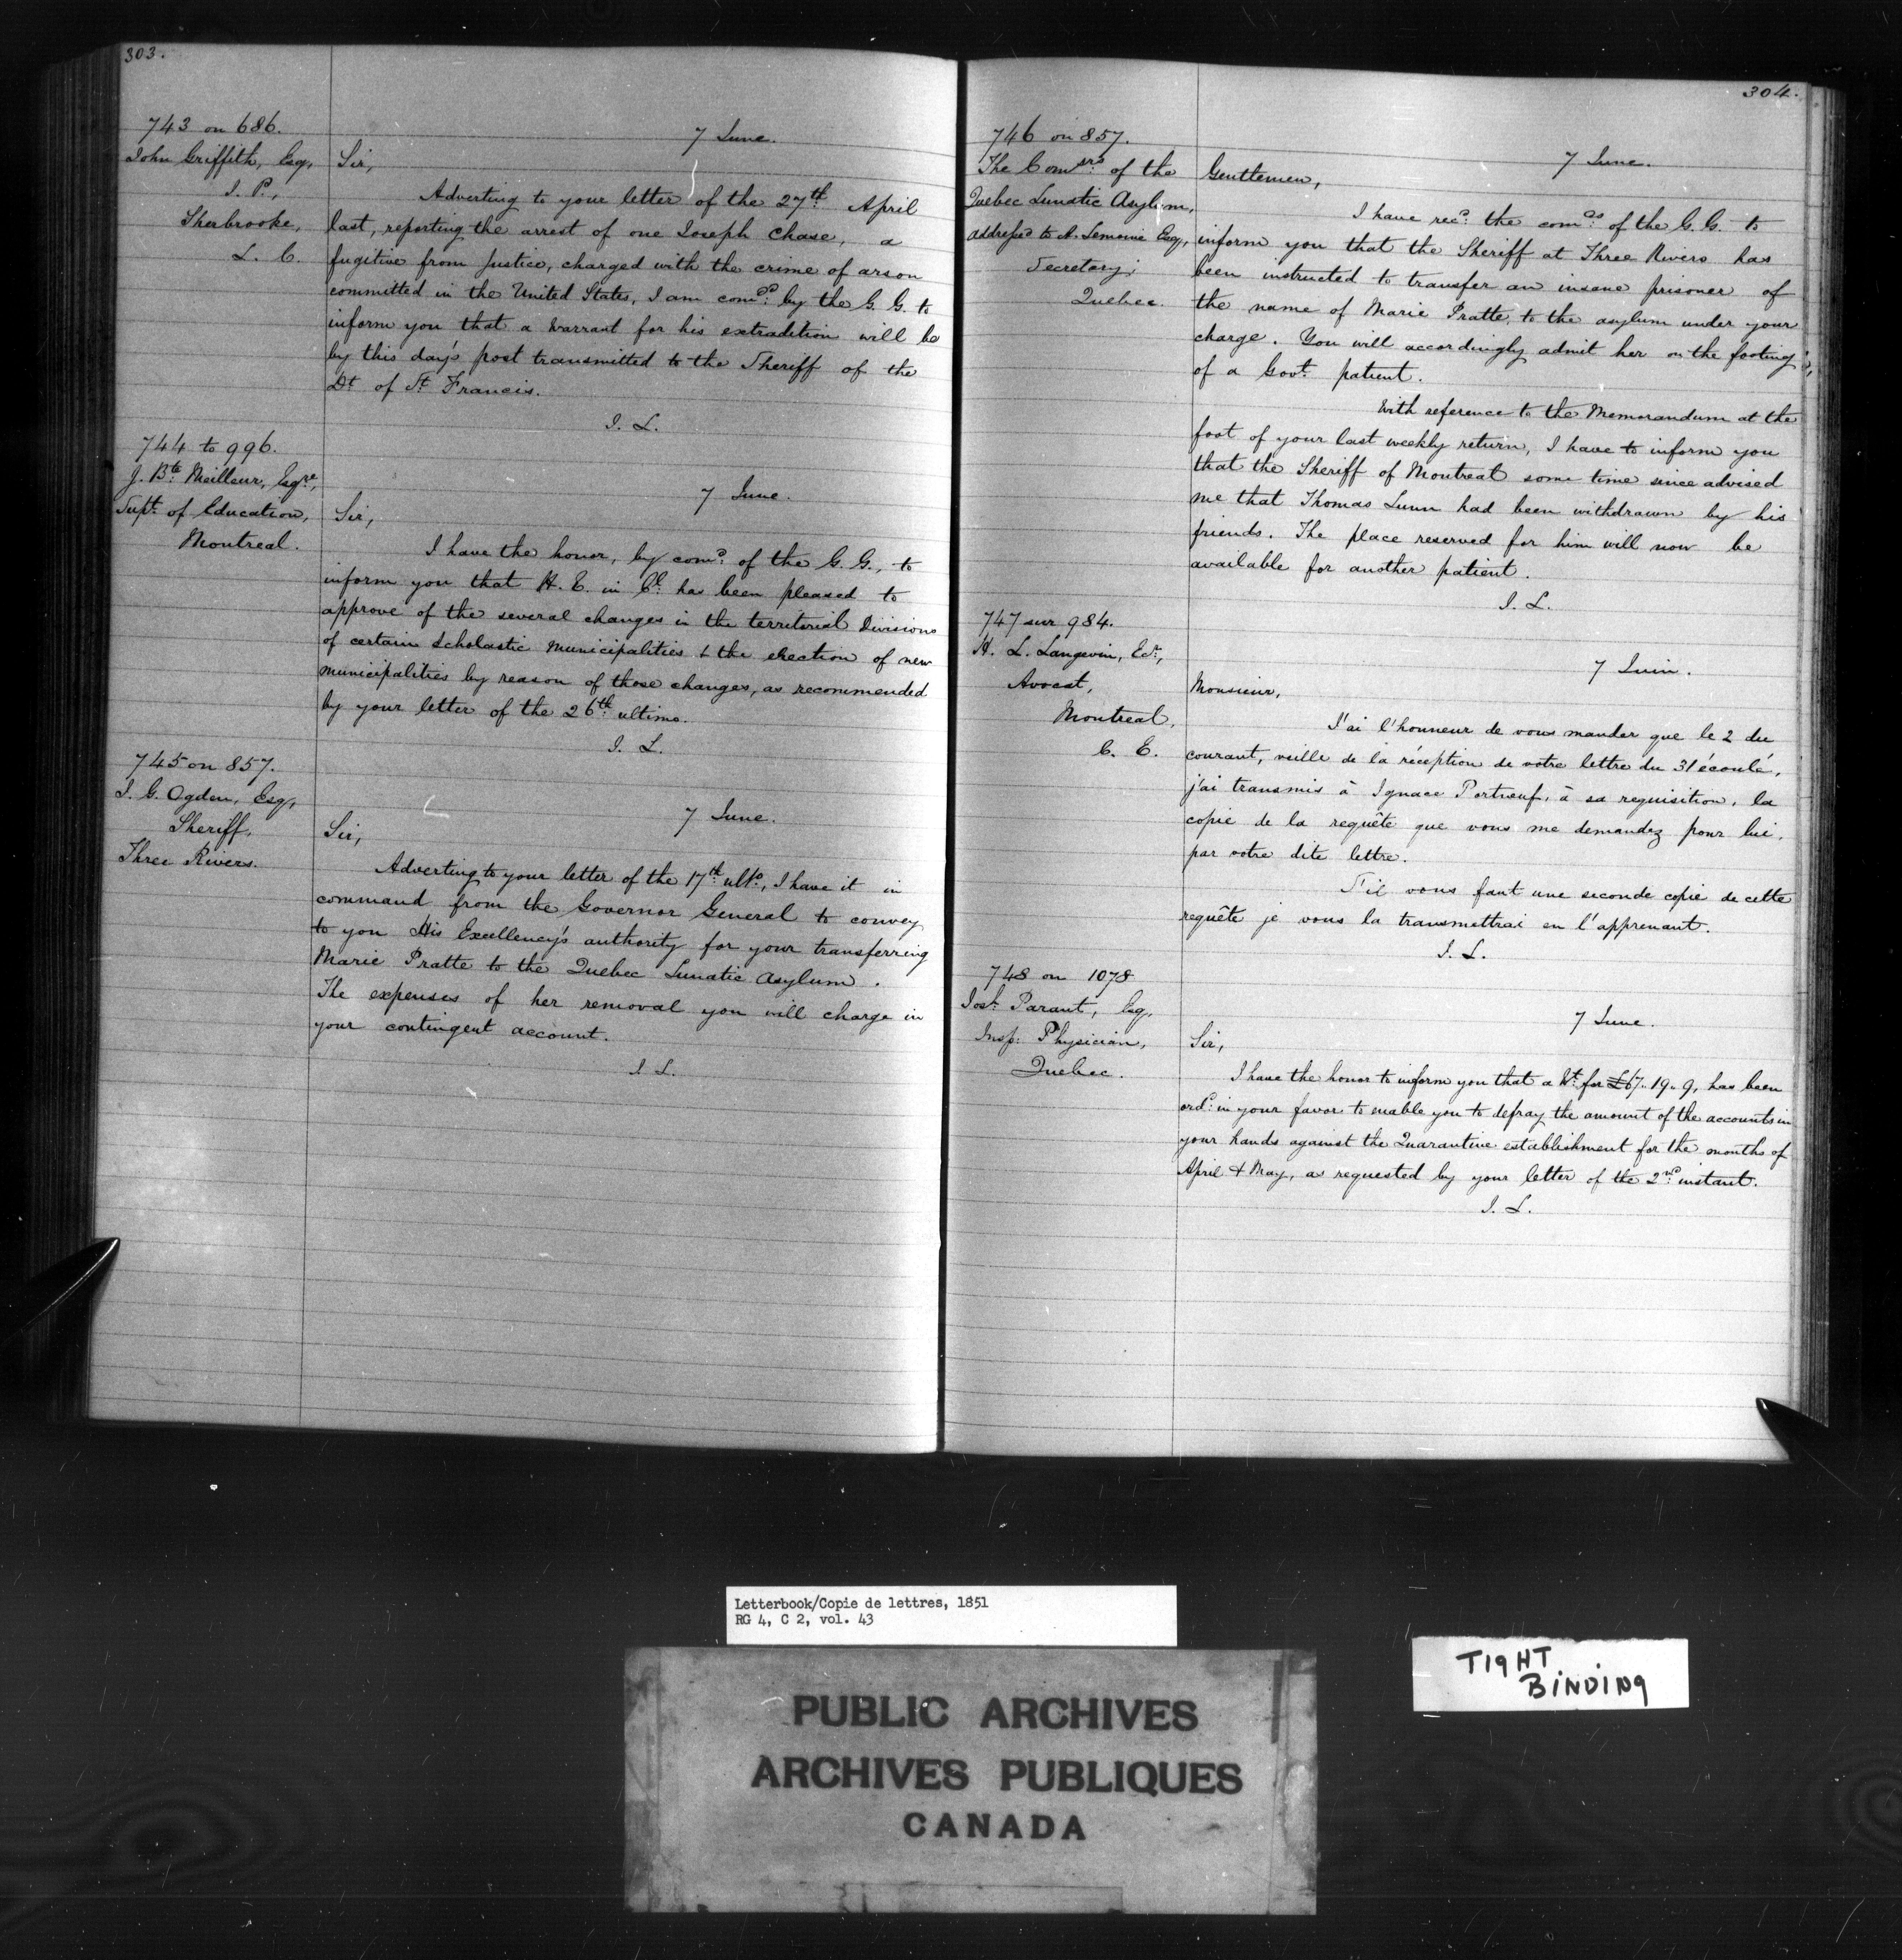 303.
743 on 686.
John Griffith, Esq,
J. P.,
Sherbrooke,
L. C.
7 June.
Sir,
Adverting to your letter of the 27th. April
last, reporting the arrest of one Joseph Chase, a
fugitive from Justice, charged with the crime of arson
committed in the United States, I am comdd. by the G. G. to
inform you that a Warrant for his extradition will be
by this day's post transmitted to the Sheriff of the
Dt. of St. Francis.
J. L.
744 to 996.
J. Bte. Meilleur, Esqre,
Supt. of Education,
Montreal.
7 June.
Sir,
I have the honor, by comd. of the G. G., to
inform you that H. E. in Cl. has been pleased to
approve of the several changes in the territorial Divisions
of certain Scholastic Municipalities & the erection of new
Municipalities by reason of those changes, as recommended
by your letter of the 26th. ultimo.
J. L.
745 on 857.
I. G. Ogden, Esq,
Sheriff,
Three Rivers.
7 June.
Sir,
Adverting to your letter of the 17th. ulto., I have it in
command from the Governor General to convey
to you His Excellency's authority for your transferring
Marie Pratte to the Quebec Lunatic Asylum.
The expenses of her removal you will charge in
your contingent account.
J L.
304.
746 on 857.
The Comsrs. of the
Quebec Lunatic Asylum,
addressed to A. Lemoine Esq,
Secretary,
Quebec.
7 June.
Gentlemen,
I have recd. the comds. of the G. G. to
inform you that the Sheriff at Three Rivers has
been instructed to transfer an insane prisoner of
the name of Marie Pratte, to the asylum under your
charge. You will accordingly admit her on the footing
of a Govt. patient.
With reference to the Memorandum at the
foot of your last weekly return, I have to inform you
that the Sheriff of Montreal some time since advised
me that Thomas Lunn had been withdrawn by his
friends. The place reserved for him will now be
available for another patient.
J. L.
747 sur 984.
H. L. Langevin, Ecr.,
Avocat,
Montreal,
C. E.
7 Juin.
Monsieur,
J'ai l'honneur de vous mander que le 2 du
courant, veille de la réception de votre lettre du 31 écoulé,
j'ai transmis à Ignace Portneuf, à sa requisition, la
copie de la requête que vous me demandez pour lui,
par votre dite lettre.
S'il vous faut une seconde copie de cette
requête je vous la transmettrai en l'apprenant.
J. L.
748 on 1078
Josh. Parant, Esq,
Insp: Physician,
Quebec.
7 June.
Sir,
I have the honor to inform you that a Wt. for £67. 19. 9, has been
ordd. in your favor to enable you to defray the amount of the accounts in
your hands against the Quarantine establishment for the months of
April & May, as requested by your letter of the 2nd. instant.
J. L.
Letterbook/Copie de lettres, 1851
RG 4, C 2, vol. 43
TIGHT
BINDING
PUBLIC ARCHIVES
ARCHIVES PUBLIQUES
CANADA